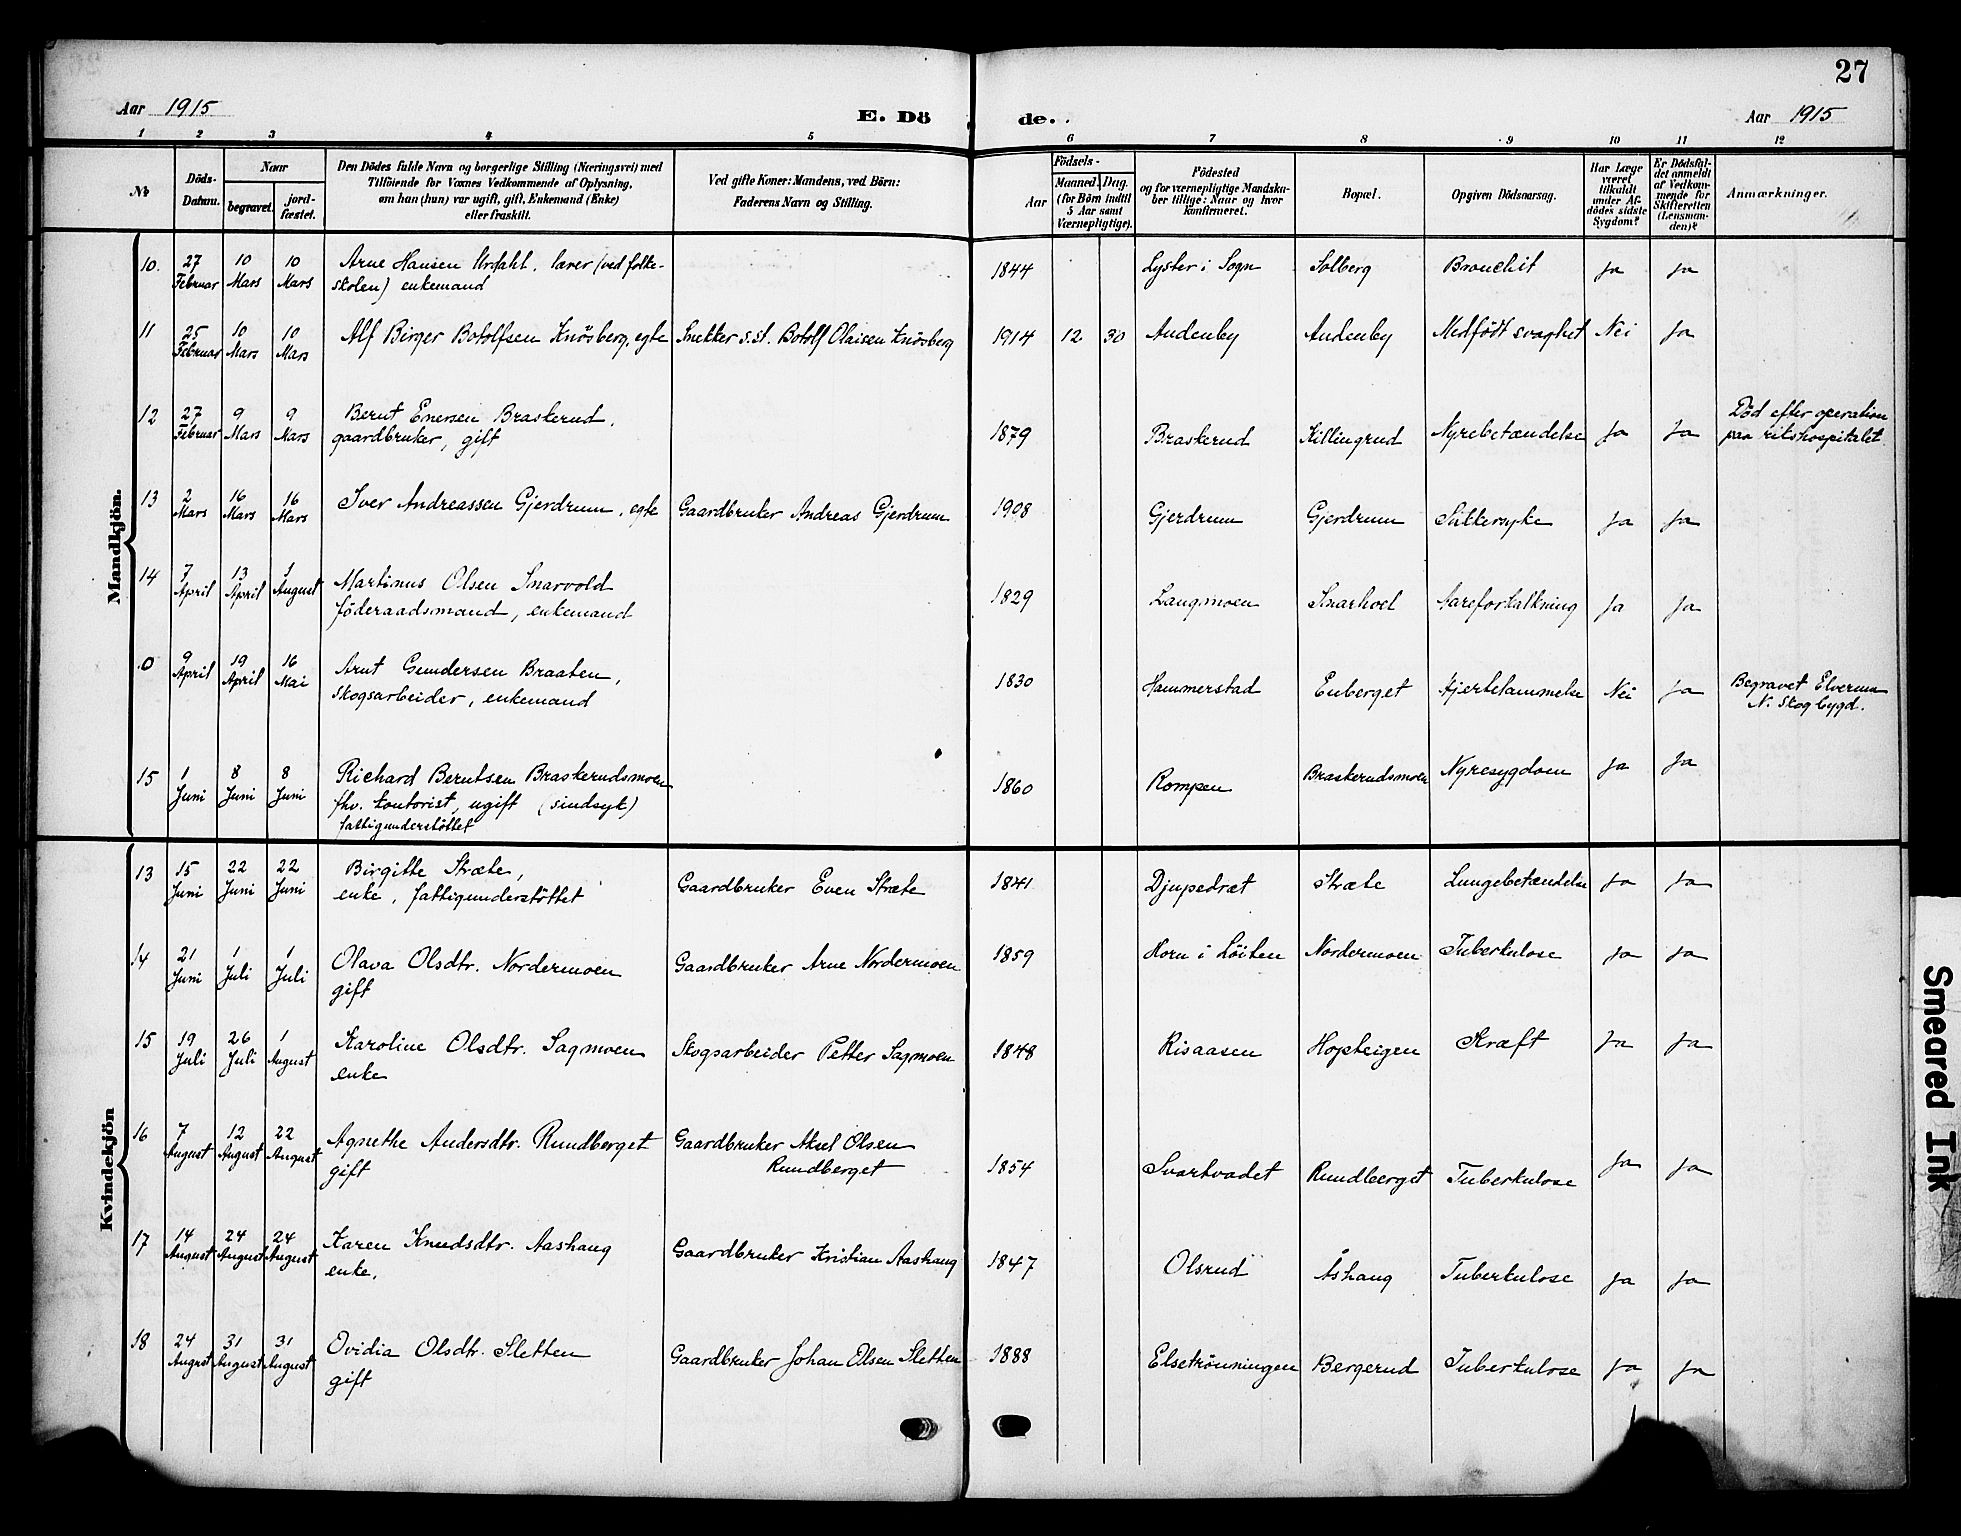 27
Aar 1915
E. Dö
de.
Aar 1915
1 2 3 4 5 6 7 8 9 10 11 12
No
Döds-
Datum.
Naar
begravet.
jord-
fæstet.
Den Dödes fulde Navn og borgerlige Stilling (Næringsvei) med
Tilföiende for Voxnes Vedkommende af Oplysning,
om han (hun) var ugift, gift, Enkemand (Enke)
eller fraskilt.
Ved gifte Koner: Mandens, ved Börn:
Faderens Navn og Stilling.
Födsels-
Aar
Maaned. Dag.
(for Börn indtil
5 Aar samt
Værnepligtige).
Födested
og for værnepligtige Mandska-
ber tillige: Naar og hvor
konfirmeret.
Bopæl.
Opgiven Dödsaarsag.
Har Læge
været
tilkaldt
under Af-
dödes sidste
Sygdom?
Er Dödsfal-
det anmeldt
af Vedkom-
mende for
Skifteretten
(Lensman-
den)?
Anmærkninger.
Mandkjön.
10. 27 Februar 10 Mars 10 Mars Arne Hansen Urdahl, lærer (ved folke-
skolen) enkemand 1844 Lyster i Sogn Solberg Bronchit Ja Ja
11 25 Februar 10 Mars 10 Mars Alf Birger Botolfsen Knösberg, egte Snekker s.st. Botolf Olaisen Knösberg 1914 12 30 Audenby Audenby Medfödt svaghet Nei Ja
12 27 Februar 9 Mars 9 Mars Bernt Enersen Braskerud,
gaardbruker, gift 1879 Braskerud Killingrud Nyrebetændelse Ja Ja Död efter operation
paa rikshospitalet
13 2 Mars 16 Mars 16 Mars Iver Andreassen Gjerdrum, egte Gaardbruker Andreas Gjerdrum 1908 Gjerdrum Gjerdrum Sukkersyke Ja Ja
14 7 April 13 April 1 August Martinus Olsen Snarvold
föderaadsmand, enkemand 1829 Langmoen Snarhoel Aareforkalkning Ja Ja
0 9 April 19 April 16 Mai Arnt Gundersen Braaten,
skogsarbeider, enkemand 1830 Hammerstad Enberget Hjertelammelse Nei Ja Begravet Elverum
N. Skogbygd.
15 1 Juni 8 Juni 8 Juni Richard Berntsen Braskerudsmoen
fhv. kontorist, ugift (sindsyk)
fattigunderstöttet 1860 Rompen Braskerudsmoen Nyresygdom Ja Ja
Kvindekjön
13 15 Juni 22 Juni 22 Juni Birgitte Stræte,
enke, fattigunderstöttet Gaardbruker Even Stræte 1841 Djupedræt Stræte Lungebetændelse Ja Ja
14 21 Juni 1 Juli 1 Juli Olava Olsdtr. Nordermoen
gift Gaardbruker Arne Nordermoen 1859 Horn i Löiten Nordermoen Tuberkulose Ja Ja
15 19 Juli 26 Juli 1 August Karoline Olsdtr. Sagmoen
enke Skogsarbeider Petter Sagmoen 1848 Risaasen Hopsteigen Kræft Ja Ja
16 7 August 12 August 22 August Agnethe Andersdtr. Rundberget
gift Gaardbruker Aksel Olsen
Rundberget 1854 Svartvadet Rundberget Tuberkulose Ja Ja
17 14 August 24 August 24 August Karen Knudsdtr. Aashaug
enke. Gaardbruker Kristian Aashaug 1847 Olsrud Åshaug Tuberkulose Ja Ja
18 24 August 31 August 31 August Ovidia Olsdtr. Sletten
gift Gaardbruker Johan Olsen Sletten 1888 Elsetrönningen Bergerud Tuberkulose Ja Ja
Smeared Ink